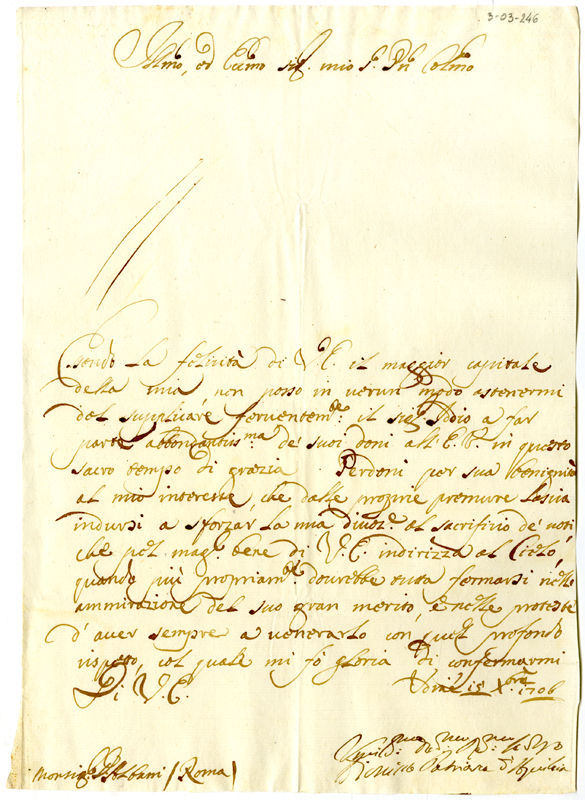 3-03-246
Illmo, ed Eccmo Sig. mio Colmo
Essendo la felicità di V.E. il maggior capitale
della mia, non posso in verun modo astenermi
dal supplicare ferventem.te il Sig. Iddio a far
parte abbondantiss.ma de' suoi doni all'E.V. in questo
sacro tempo di grazia Perdoni per sua benignità
al mio interesse, che dalle proprie premure lascia
indursi a sforzar la mia divoz.e al sacrificio de' voti
che pel magg. bene di V.E. indirizza al Cielo,
quando più propriam.te dovrebbe tutta fermarsi nelle
ammirazione del suo gran merito, e nelle proteste
d'aver sempre a venerarlo con quel profondo
rispetto, col quale mi fò gloria di confermarmi
Di V.E. Udine 15 Xbre 1706
Dionisio Patriarca d'Aquileia
Monsig. Albani (Roma)